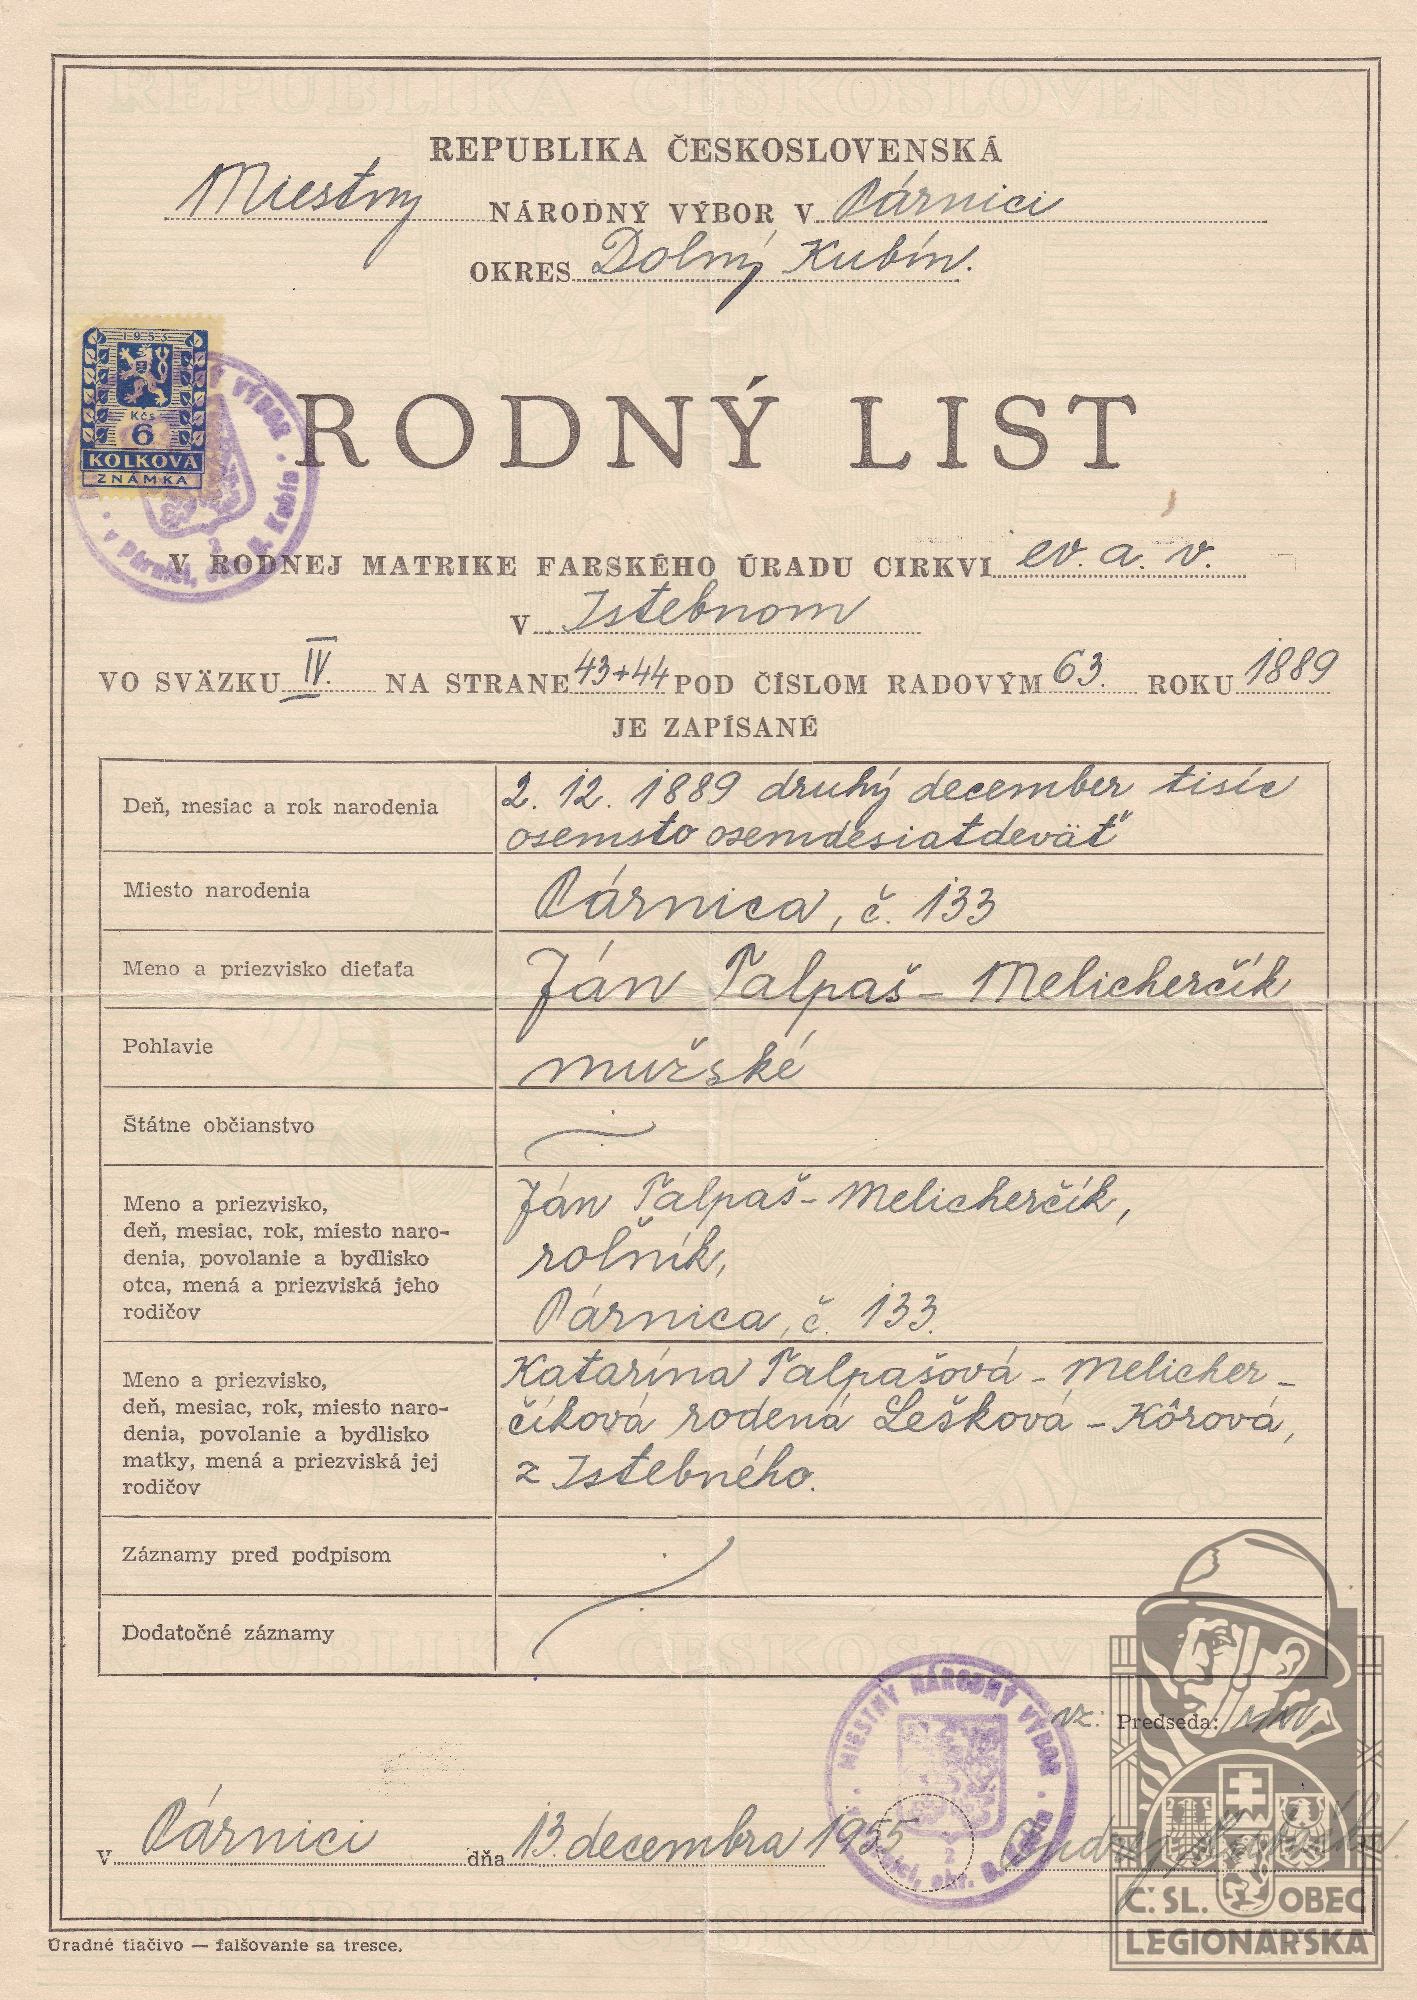 REPUBLIKA ČESKOSLOVENSKÁ
Miestny NÁRODNÝ VÝBOR V Párnici
OKRES Dolný Kubín.
1953
Kčs
6
KOLKOVÁ
ZNÁMKA
VÝBOR
v Párnici, okr. D. Kubín
2
RODNÝ LIST
V RODNEJ MATRIKE FARSKÉHO ÚRADU CIRKVI ev. a. v.
V Istebnom
VO SVÄZKU IV. NA STRANE 43+44 POD ČÍSLOM RADOVÝM 63. ROKU 1889
JE ZAPÍSANÉ
Deň, mesiac a rok narodenia
2. 12. 1889 druhý december tisíc
osemsto osemdesiatdeväť
Miesto narodenia
Párnica, č. 133
Meno a priezvisko dieťaťa
Ján Ťalpaš - Melicherčík
Pohlavie
mužské
Štátne občianstvo
Meno a priezvisko,
deň, mesiac, rok, miesto naro-
denia, povolanie a bydlisko
otca, mená a priezviská jeho
rodičov
Ján Ťalpaš - Melicherčík,
roľník,
Párnica, č. 133.
Meno a priezvisko,
deň, mesiac, rok, miesto naro-
denia, povolanie a bydlisko
matky, mená a priezviská jej
rodičov
Katarína Ťalpašová - Melicher-
číková rodená Lešková - Kôrová,
z Istebného.
Záznamy pred podpisom
Dodatočné záznamy
MIESTNY NÁRODNÝ VÝBOR
v Párnici, okr. D. Kubín
2
vz: Predseda:
V Párnici dňa 13. decembra 1955
Č. SL. OBEC
LEGIONÁŘSKÁ
Úradné tlačivo — falšovanie sa tresce.